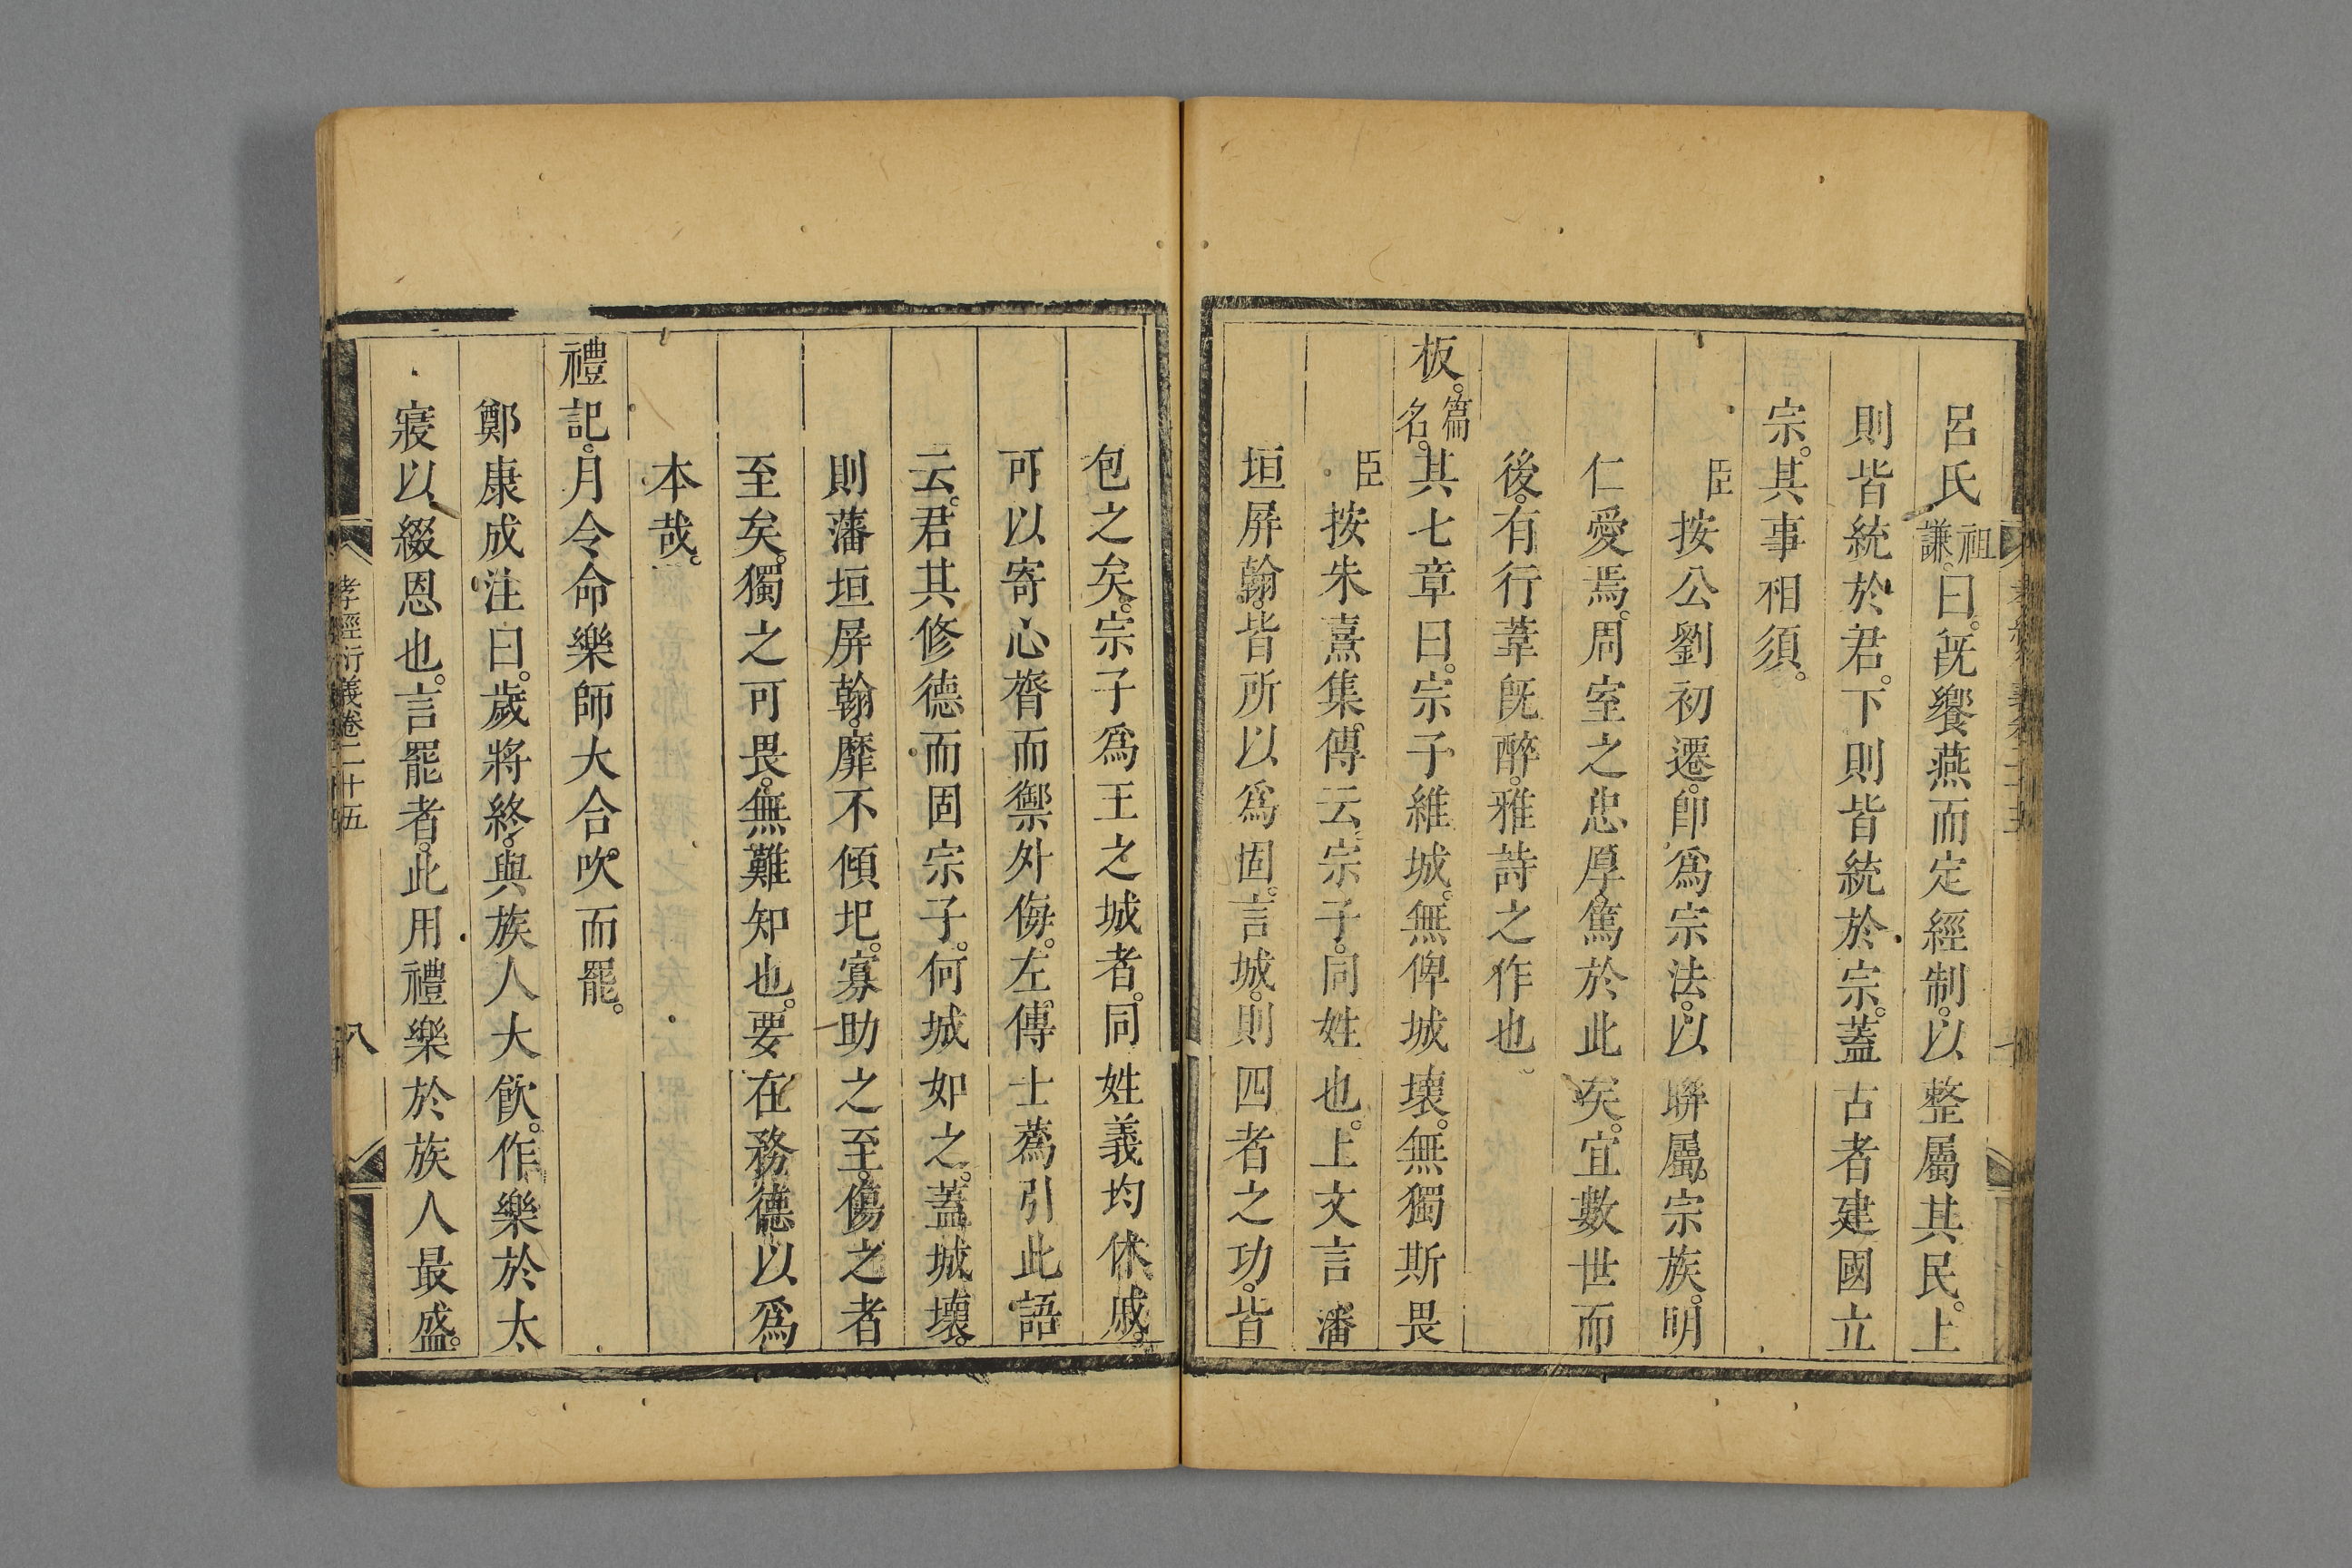 呂氏祖謙曰。旣饗燕而定經制。以整屬其民。上
則皆統於君。下則皆統於宗。蓋古者建國立
宗。其事相須。
臣按公劉初遷。卽爲宗法。以聯屬宗族。明
仁愛焉。周室之忠厚。篤於此矣。宜數世而
後。有行葦旣醉。雅詩之作也。
板。篇名。其七章曰。宗子維城。無俾城壞。無獨斯畏
臣按朱熹集傳云。宗子。同姓也。上文言藩
垣屛翰。皆所以爲固。言城。則四者之功。皆
包之矣。宗子爲王之城者。同姓義均休戚。
可以寄心膂而禦外侮。左傳士蒍引此語
云。君其修德而固宗子。何城如之。蓋城壞。
則藩垣屛翰。靡不傾圯。寡助之至。傷之者
至矣。獨之可畏。無難知也。要在務德以爲
本哉。
禮記。月令命樂師大合吹而罷。
鄭康成注曰。歲將終。與族人大飮。作樂於太
寢以綴恩也。言罷者。此用禮樂於族人最盛。
孝經衍義卷二十五
八